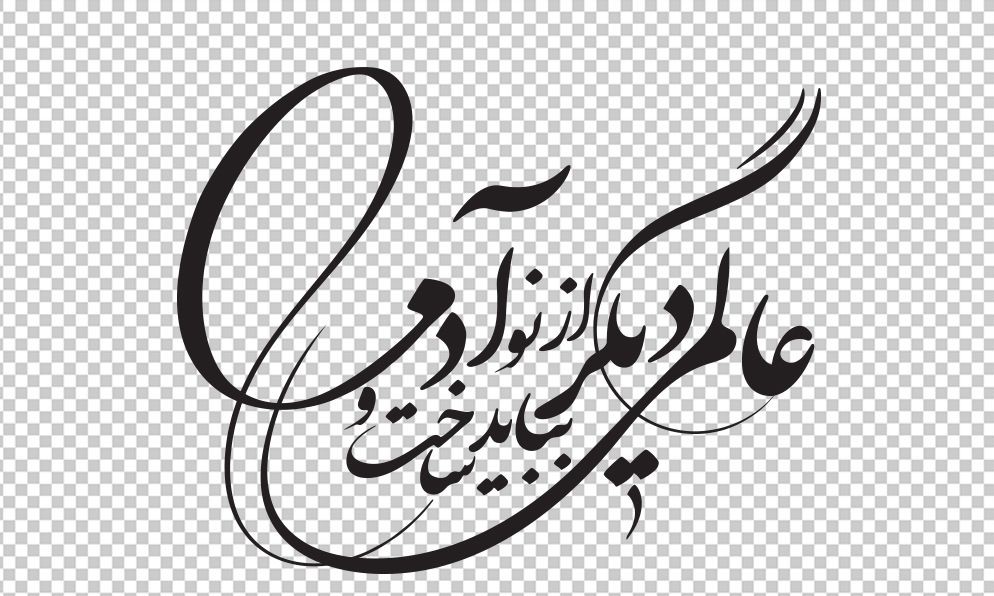 عالمی دیگر بباید ساخت و از نو آدمی